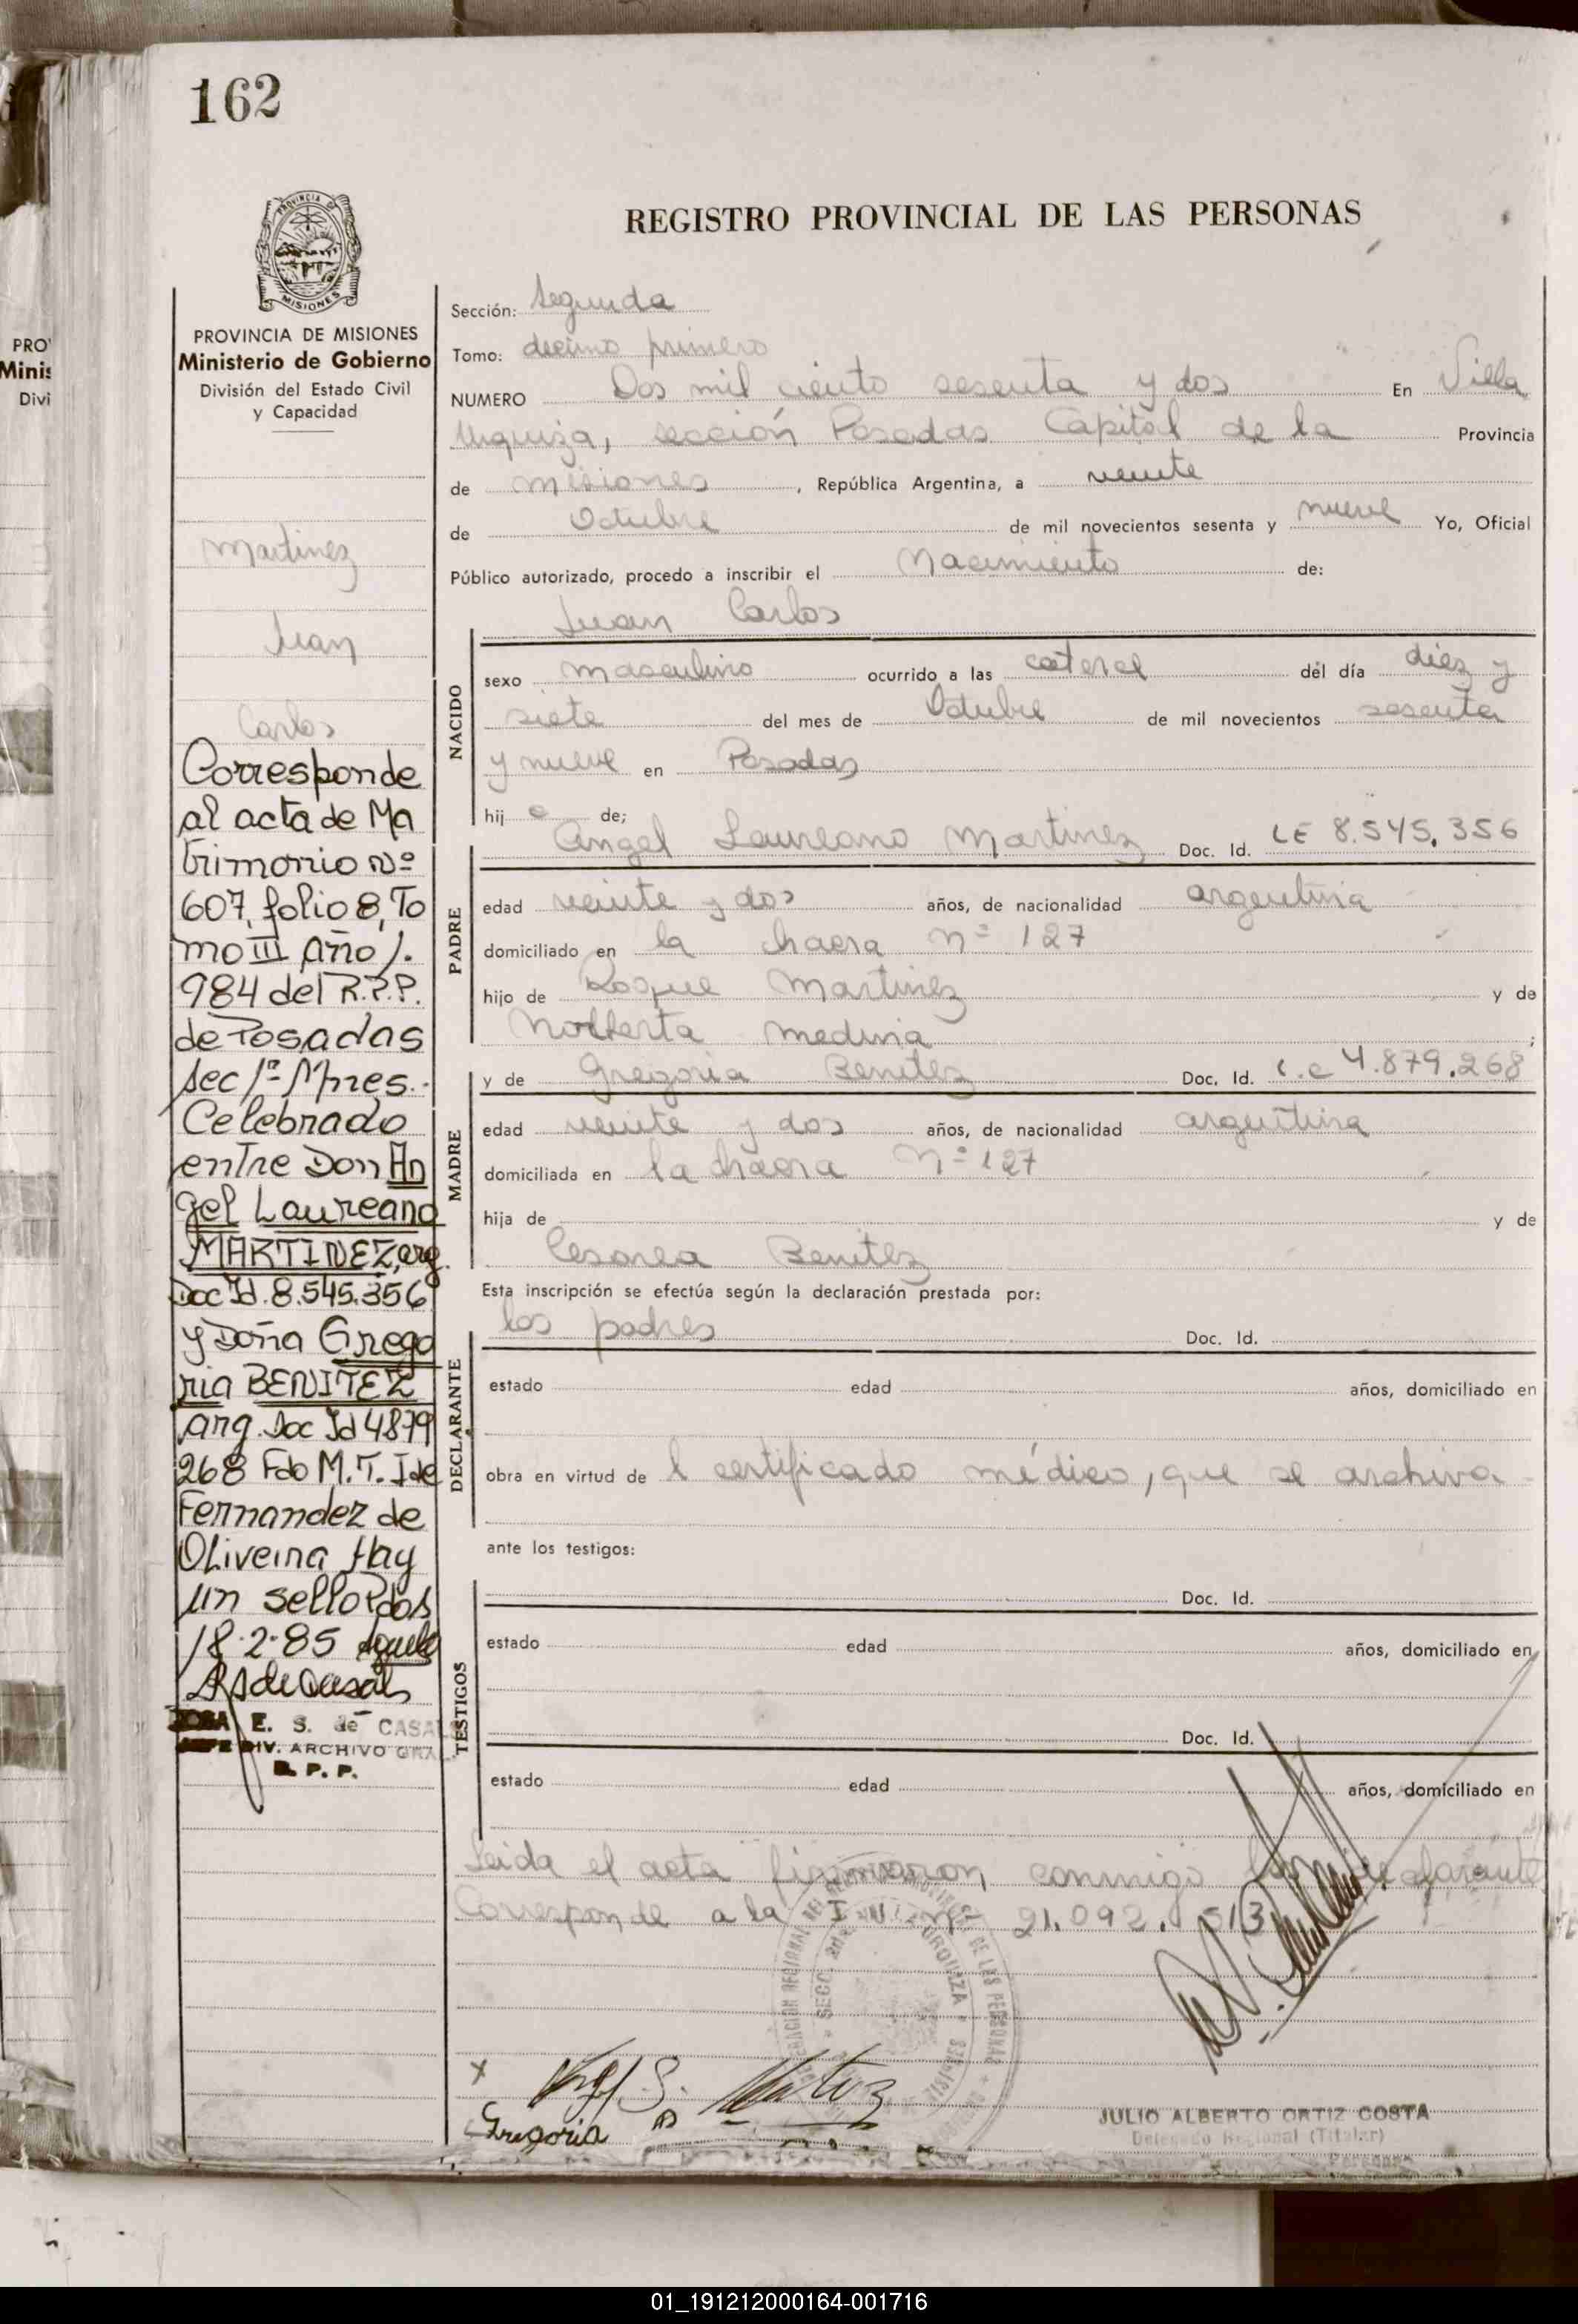 162
PROVINCIA DE
MISIONES
PROVINCIA DE MISIONES
Ministerio de Gobierno
División del Estado Civil
y Capacidad
Martinez
Juan
Carlos
Corresponde
al acta de Ma
trimonio Nº
607, folio 8, To
mo III Año 1.
984 del R.P.P.
de Posadas
sec 1ª Mnes.-
Celebrado
entre Don An
gel Laureano
MARTINEZ, arg.
Doc Id. 8.545.356
y Doña Grego
ria BENITEZ
arg. Doc Id 4879
268 Fdo M.T. I de
Fernandez de
Oliveira Hay
un sello Pdas
18-2-85
E. S. de CASA
DIV. ARCHIVO GRAL
R. P. P.
REGISTRO PROVINCIAL DE LAS PERSONAS
Sección: Segunda
Tomo: decimo primero
NUMERO Dos mil ciento sesenta y dos En Villa
Urquiza, sección Posadas Capital de la Provincia
de Misiones, República Argentina, a veinte
de Octubre de mil novecientos sesenta y nueve Yo, Oficial
Público autorizado, procedo a inscribir el Nacimiento de:
Juan Carlos
NACIDO
sexo masculino ocurrido a las catorce del día diez y
siete del mes de Octubre de mil novecientos sesenta
y nueve en Posadas
hij o de;
Angel Laureano Martinez Doc. Id. LE 8.545.356
PADRE
edad veinte y dos años, de nacionalidad argentina
domiciliado en la chacra Nº 127
hijo de Roque Martinez y de
Norberta Medina ;
y de Gregoria Benitez Doc. Id. L.C 4.879.268
MADRE
edad veinte y dos años, de nacionalidad argentina
domiciliada en la chacra Nº 127
hija de y de
Cesarea Benitez
Esta inscripción se efectúa según la declaración prestada por:
los padres Doc. Id.
DECLARANTE
estado edad años, domiciliado en
obra en virtud de l certificado médico, que se archiva
ante los testigos:
Doc. Id.
TESTIGOS
estado edad años, domiciliado en
Doc. Id.
estado edad años, domiciliado en
Leida el acta firmaron conmigo declarante
Corresponde a la 21.092.513
SECC. 2da. URQUIZA
DE LAS PERSONAS
x
Gregoria B
JULIO ALBERTO ORTIZ COSTA
Delegado Regional (Titular)
PRO
Minis
Divi
01_191212000164-001716